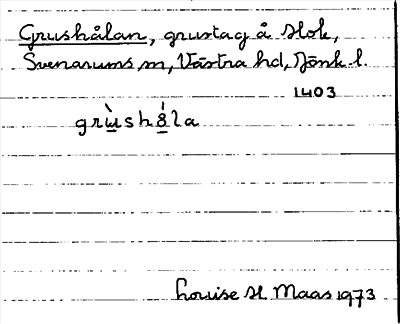 Grushålan, grustag å Stok,
Svenarums sn, Västra hd, Jönk l.
1403
grùshǻla
Louise H. Maas 1973